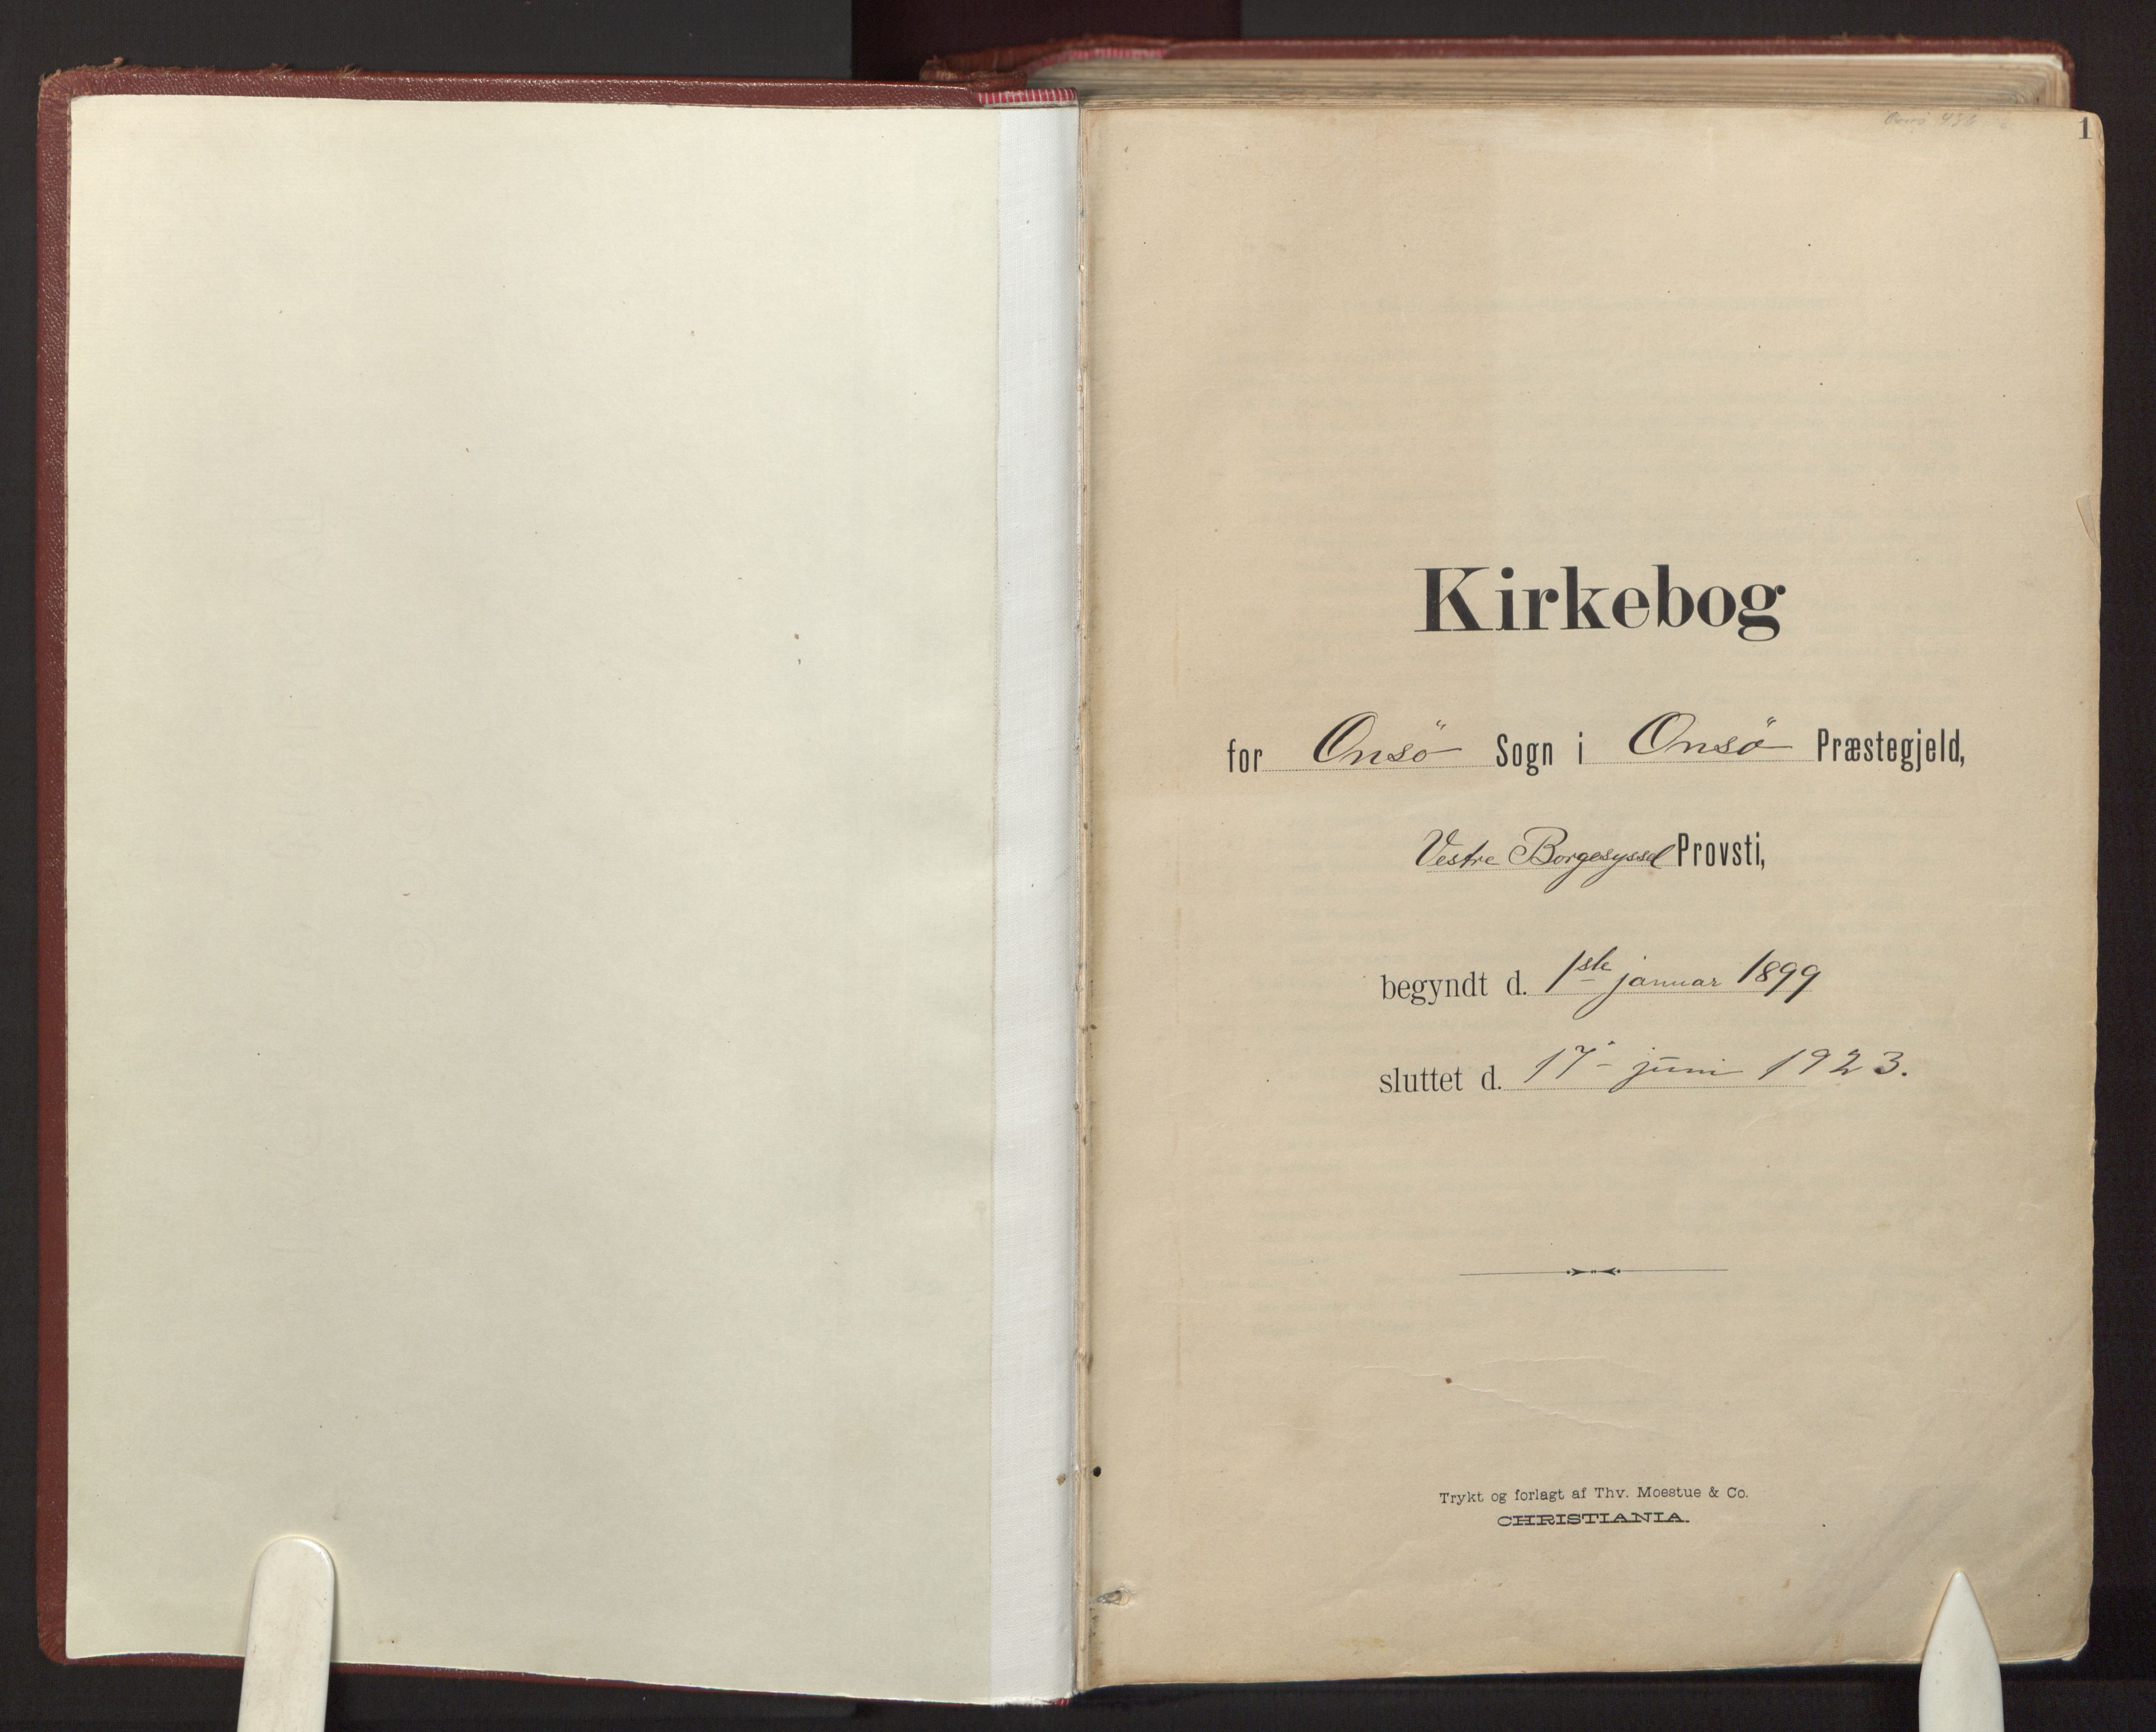 1
Kirkebog
for Onsö Sogn i Onsö Præstegjeld,
Vestre Borgesyssel Provsti,
begyndt d. 1ste januar 1899
sluttet d. 17 - juni 1923.
Trykt og forlagt af Thv. Moestue & Co.
CHRISTIANIA.